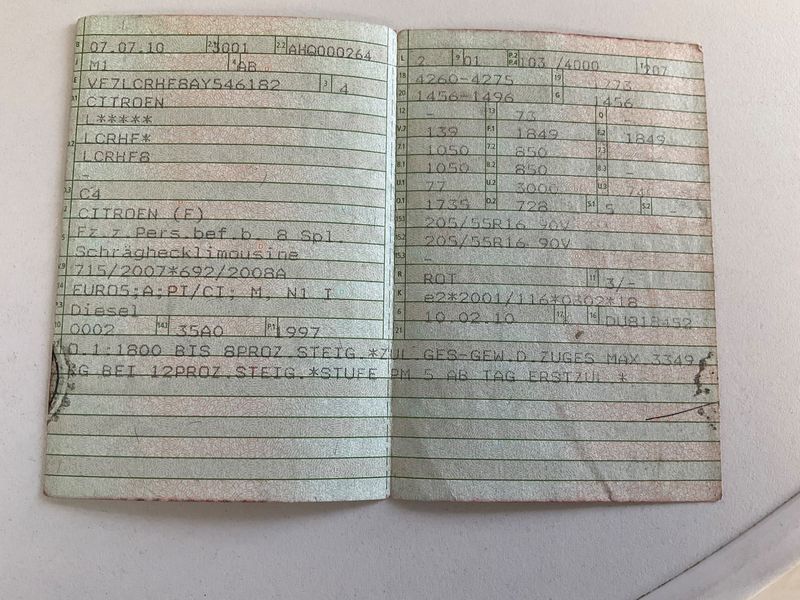 B 07.07.10 2.1 3001 2.2 AHQ000264
J M1 4 AB
E VF7LCRHF8AY546182 3 4
D.1 CITROEN
L*****
LCRHF*
D.2 LCRHF8
-
D.3 C4
2 CITROEN (F)
5 Fz.z.Pers.bef.b. 8 Spl.
Schräghecklimousine
V.9 715/2007*692/2008A
14 EURO5;A;PI/CI; M, N1 I
P.3 Diesel
10 0002 14.1 35A0 P.1 1997
L 2 9 01 P.2 P.4 103 /4000 T 207
18 4260-4275 19 1773
20 1456-1496 G 1456
12 - 13 73 Q -
V.7 139 F.1 1849 F.2 1849
7.1 1050 7.2 850 7.3 -
8.1 1050 8.2 850 8.3 -
U.1 77 U.2 3000 U.3
O.1 1735 O.2 728 S.1 5 S.2 -
15.1 205/55R16 90V
15.2 205/55R16 90V
15.3 -
R ROT 11 3/-
K e2*2001/116*0302*18
6 10.02.10 17 16 DU818452
21
O.1:1800 BIS 8PROZ.STEIG.*ZUL.GES-GEW.D.ZUGES MAX 3349
KG BEI 12PROZ.STEIG.*STUFE PM 5 AB TAG ERSTZUL.*